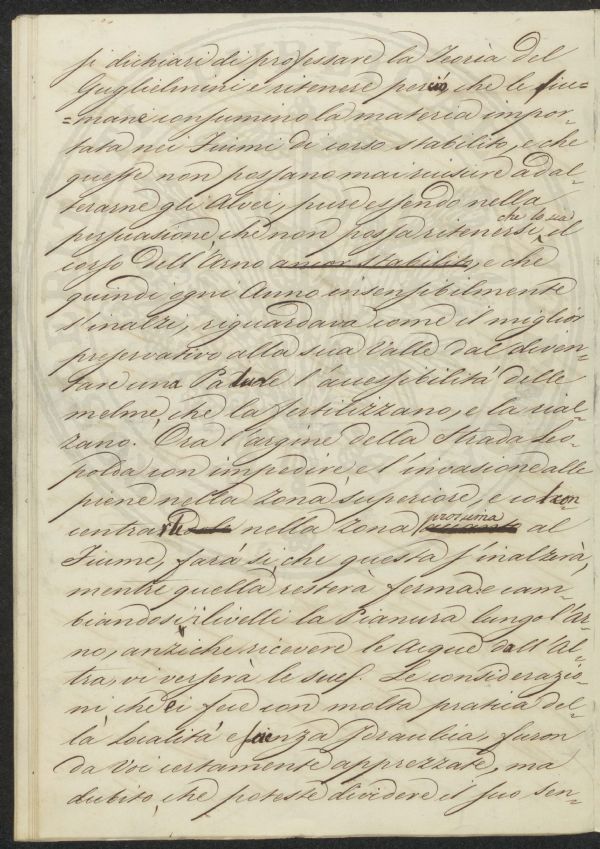 si dichiari di professare la Teoria del
Guglielmini e ritenere perciò, che le fiu=
=mane consumino la materia impor-
tata nei Fiumi di corso stabilito, e che
queste non possano mai riuscire ad al-
terarne gli Alvei, pure essendo nella
persuasione, che non possa ritenersi, che la sua il
corso dell'Arno ancor stabilito, e che
quindi ogni Anno insensibilmente
s'inalzi, riguardava come il miglior
preservativo alla sua Valle dal diven-
tare una Padule l'accessibilità delle
melme, che la fertilizzano, e la rial-
zano. Ora l'argine della Strada Leo-
polda con impedire e l'invasione alle
piene nella zona superiore, e con
centrarle nella zona prossima al
Fiume, farà sì, che questa s'inalzerà,
mentre quella resterà ferma e cam-
biandosi i livelli la Pianura lungo l'Ar-
no, anziché ricevere le Acque dall'Al-
tra, vi verserà le sue. Le considerazio-
ni che ei fece con molta pratica del-
la località e scienza Idraulica, furon
da Voi certamente apprezzate, ma
dubito, che poteste dividere il suo sen-